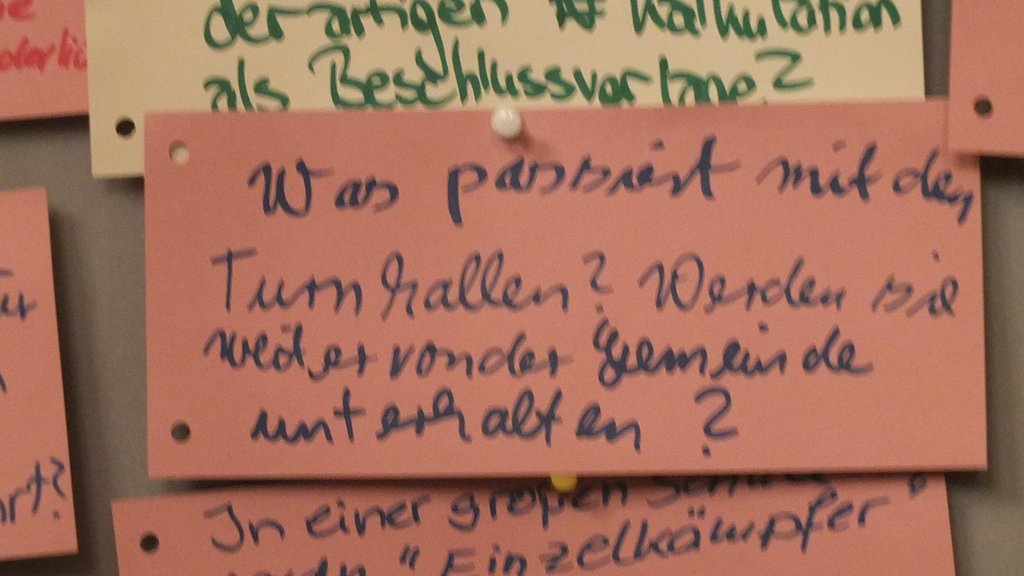 derartigen Kalkulation
als Beschlussvorlage?
Was passiert mit den
Turnhallen? Werden sie
weiter von der Gemeinde
unterhalten?
In einer großen
"Einzelkämpfer"